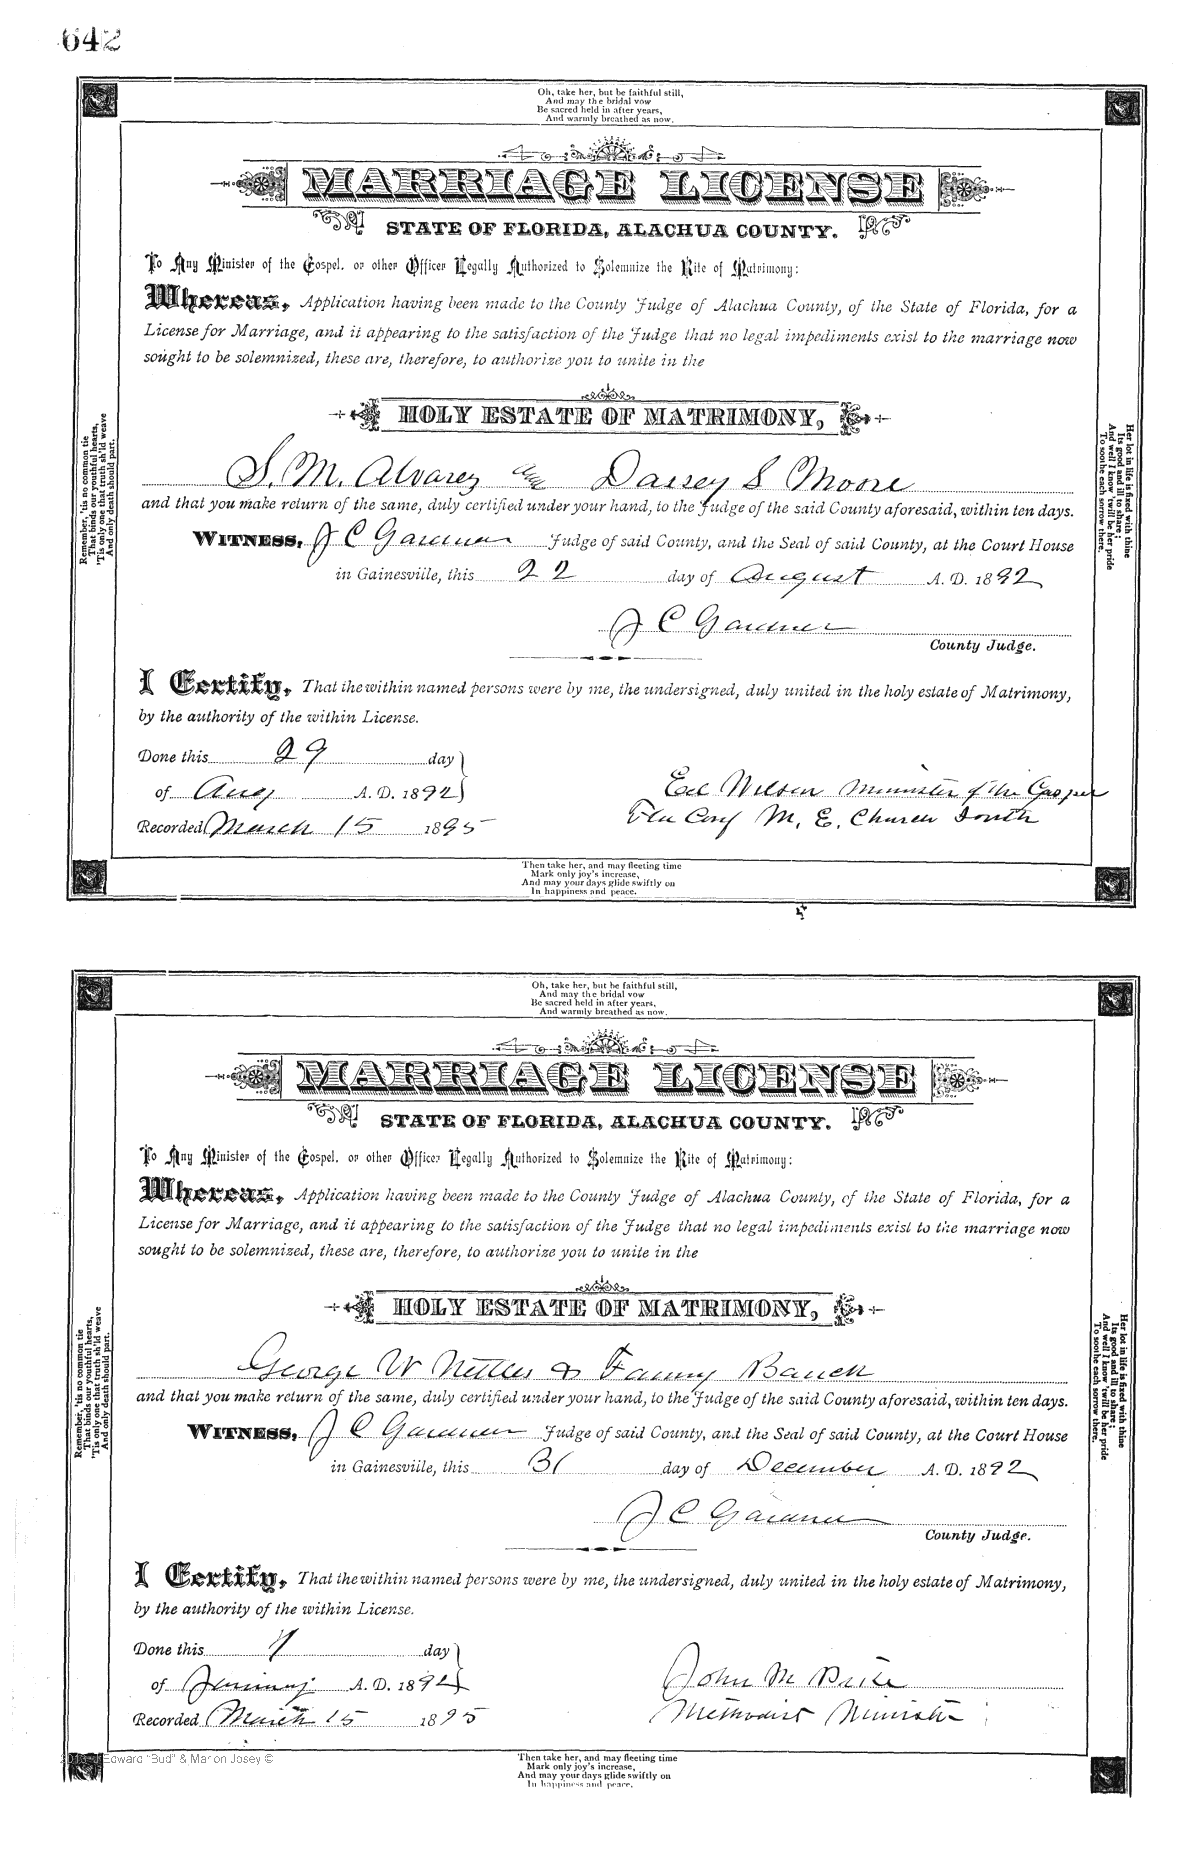 642
Oh, take her, but be faithful still,
And may the bridal vow
Be sacred held in after years,
And warmly breathed as now.
MARRIAGE LICENSE
STATE OF FLORIDA, ALACHUA COUNTY.
To Any Minister of the Gospel, or other Officer Legally Authorized to Solemnize the Rite of Matrimony:
Whereas, Application having been made to the County Judge of Alachua County, of the State of Florida, for a
License for Marriage, and it appearing to the satisfaction of the Judge that no legal impediments exist to the marriage now
sought to be solemnized, these are, therefore, to authorize you to unite in the
HOLY ESTATE OF MATRIMONY,
S. M. Alvarez and Daisey S Moore
and that you make return of the same, duly certified under your hand, to the Judge of the said County aforesaid, within ten days.
WITNESS, J C Gardner Judge of said County, and the Seal of said County, at the Court House
in Gainesville, this 22 day of August A. D. 1892
J C Gardner
County Judge.
I Certify, That the within named persons were by me, the undersigned, duly united in the holy estate of Matrimony,
by the authority of the within License.
Done this 29 day
of Aug A. D. 1892
Ed Wilson Minister of the Gosper
Recorded March 15 1895
Fla Conf M. E. Church South
Remember, 'tis no common tie
That binds our youthful hearts,
'Tis only one that truth sh'ld weave
And only death should part.
Her lot in life is fixed with thine
Its good and ill to share;
And well I know 'twill be her pride
To soothe each sorrow there.
Then take her, and may fleeting time
Mark only joy's increase,
And may your days glide swiftly on
In happiness and peace.
Oh, take her, but be faithful still,
And may the bridal vow
Be sacred held in after years,
And warmly breathed as now.
MARRIAGE LICENSE
STATE OF FLORIDA, ALACHUA COUNTY.
To Any Minister of the Gospel, or other Officer Legally Authorized to Solemnize the Rite of Matrimony:
Whereas, Application having been made to the County Judge of Alachua County, of the State of Florida, for a
License for Marriage, and it appearing to the satisfaction of the Judge that no legal impediments exist to the marriage now
sought to be solemnized, these are, therefore, to authorize you to unite in the
HOLY ESTATE OF MATRIMONY,
George W Nettles & Fanny
and that you make return of the same, duly certified under your hand, to the Judge of the said County aforesaid, within ten days.
WITNESS, J C Gardner Judge of said County, and the Seal of said County, at the Court House
in Gainesville, this 31 day of December A. D. 1892
J C Gardner
County Judge.
I Certify, That the within named persons were by me, the undersigned, duly united in the holy estate of Matrimony,
by the authority of the within License.
Done this day
of January A. D. 1892
John M
Recorded March 15 1895
Methodist Minister
Remember, 'tis no common tie
That binds our youthful hearts,
'Tis only one that truth sh'ld weave
And only death should part.
Her lot in life is fixed with thine
Its good and ill to share;
And well I know 'twill be her pride
To soothe each sorrow there.
Edward "Bud" & Marion Josey ©
Then take her, and may fleeting time
Mark only joy's increase,
And may your days glide swiftly on
In happiness and peace.